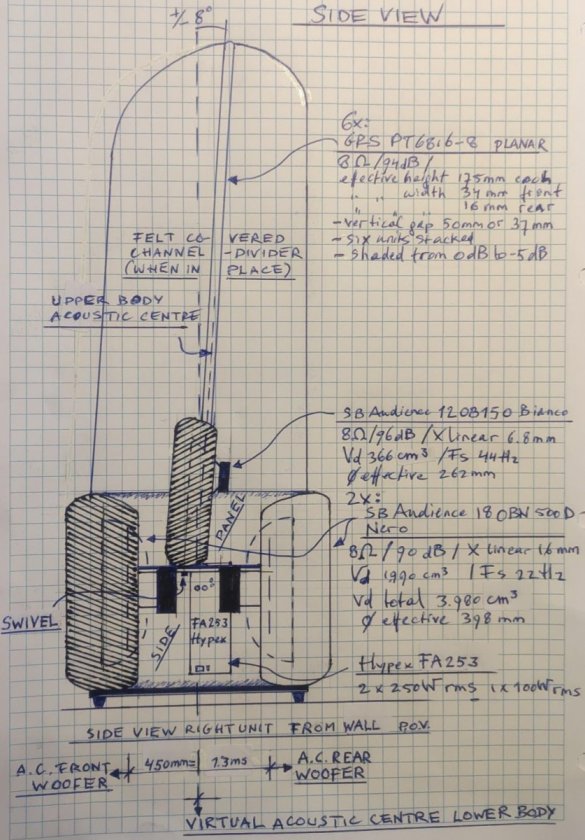 +/- 8°
SIDE VIEW
6x:
GRS PT6816-8 PLANAR
8Ω/94dB/
efective height 175mm each
" " width 34 mm front
" " " 16 mm rear
- vertical gap 50mm or 37mm
- six units stacked
- shaded from 0dB to -5dB
FELT CO- VERED
CHANNEL -DIVIDER
(WHEN IN PLACE)
UPPER BODY
ACOUSTIC CENTRE
SB Audience 12OB150 Bianco
8Ω/96dB / X linear 6.8mm
Vd 366 cm³ / Fs 44Hz
Ø effective 262mm
2x:
SB Audience 18OBN 500D
Nero
8Ω / 90 dB / X linear 16mm
Vd 1990 cm³ / Fs 22Hz
Vd total 3.980 cm³
Ø effective 398 mm
PANEL
SIDE
SWIVEL
FA253
Hypex
Hypex FA253
2 x 250W rms 1x 100W rms
SIDE VIEW RIGHT UNIT FROM WALL P.O.V.
A.C. FRONT
WOOFER
450mm= 1.3ms
A.C. REAR
WOOFER
VIRTUAL ACOUSTIC CENTRE LOWER BODY